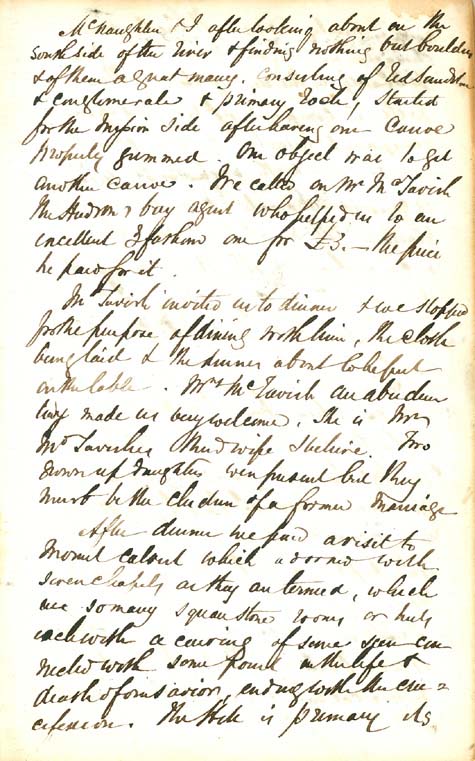 McNaughten & I after looking about on the
South side of the river & finding nothing but boulders
& of them a great many. Consisting of Red Sandstone
& conglomerate & primary rock, started
for the Mission Side after having our Canoe
properly gummed. Our object was to get
another canoe. We called on Mr McTavish
the Hudson's bay agent who helped us to an
excellent 3 fathom one for £3. – the price
he paid for it.
Mr Tavish invited us to dinner & we stopped
for the purpose of dining with him, the cloth
being laid & the dinner about to be put
on the table. Mrs McTavish an
made us very welcome. She is
McTavishes third wife I believe. Two
Grown up daughters were present but they
must be the children of a former marriage
After dinner we paid a visit to
Mount Calvert which adorned with
Seven chapels as they are termed, which
are so many square stone rooms or huts
each with a carving of some scene con
nected with some point in the life &
death of our savior, ending with the cru=
cifixion. The Hill is primary its